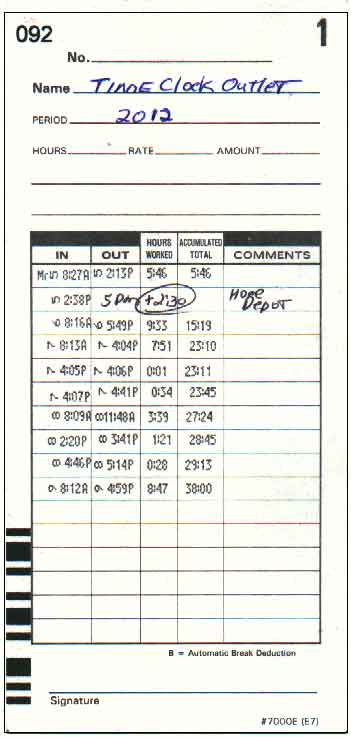 092
1
No.
Name TIME Clock Outlet
PERIOD 2012
HOURS RATE AMOUNT
IN OUT HOURS WORKED ACCUMULATED TOTAL COMMENTS
Mr 5 8:27A 5 2:13P 5:46 5:46
5 2:38P 5 PM +2:30 Home Depot
6 8:16A 6 5:49P 9:33 15:19
7 8:13A 7 4:04P 7:51 23:10
7 4:05P 7 4:06P 0:01 23:11
7 4:07P 7 4:41P 0:34 23:45
8 8:09A 8 11:48A 3:39 27:24
8 2:20P 8 3:41P 1:21 28:45
8 4:46P 8 5:14P 0:28 29:13
9 8:12A 9 4:59P 8:47 38:00
B = Automatic Break Deduction
Signature
#7000E (E7)